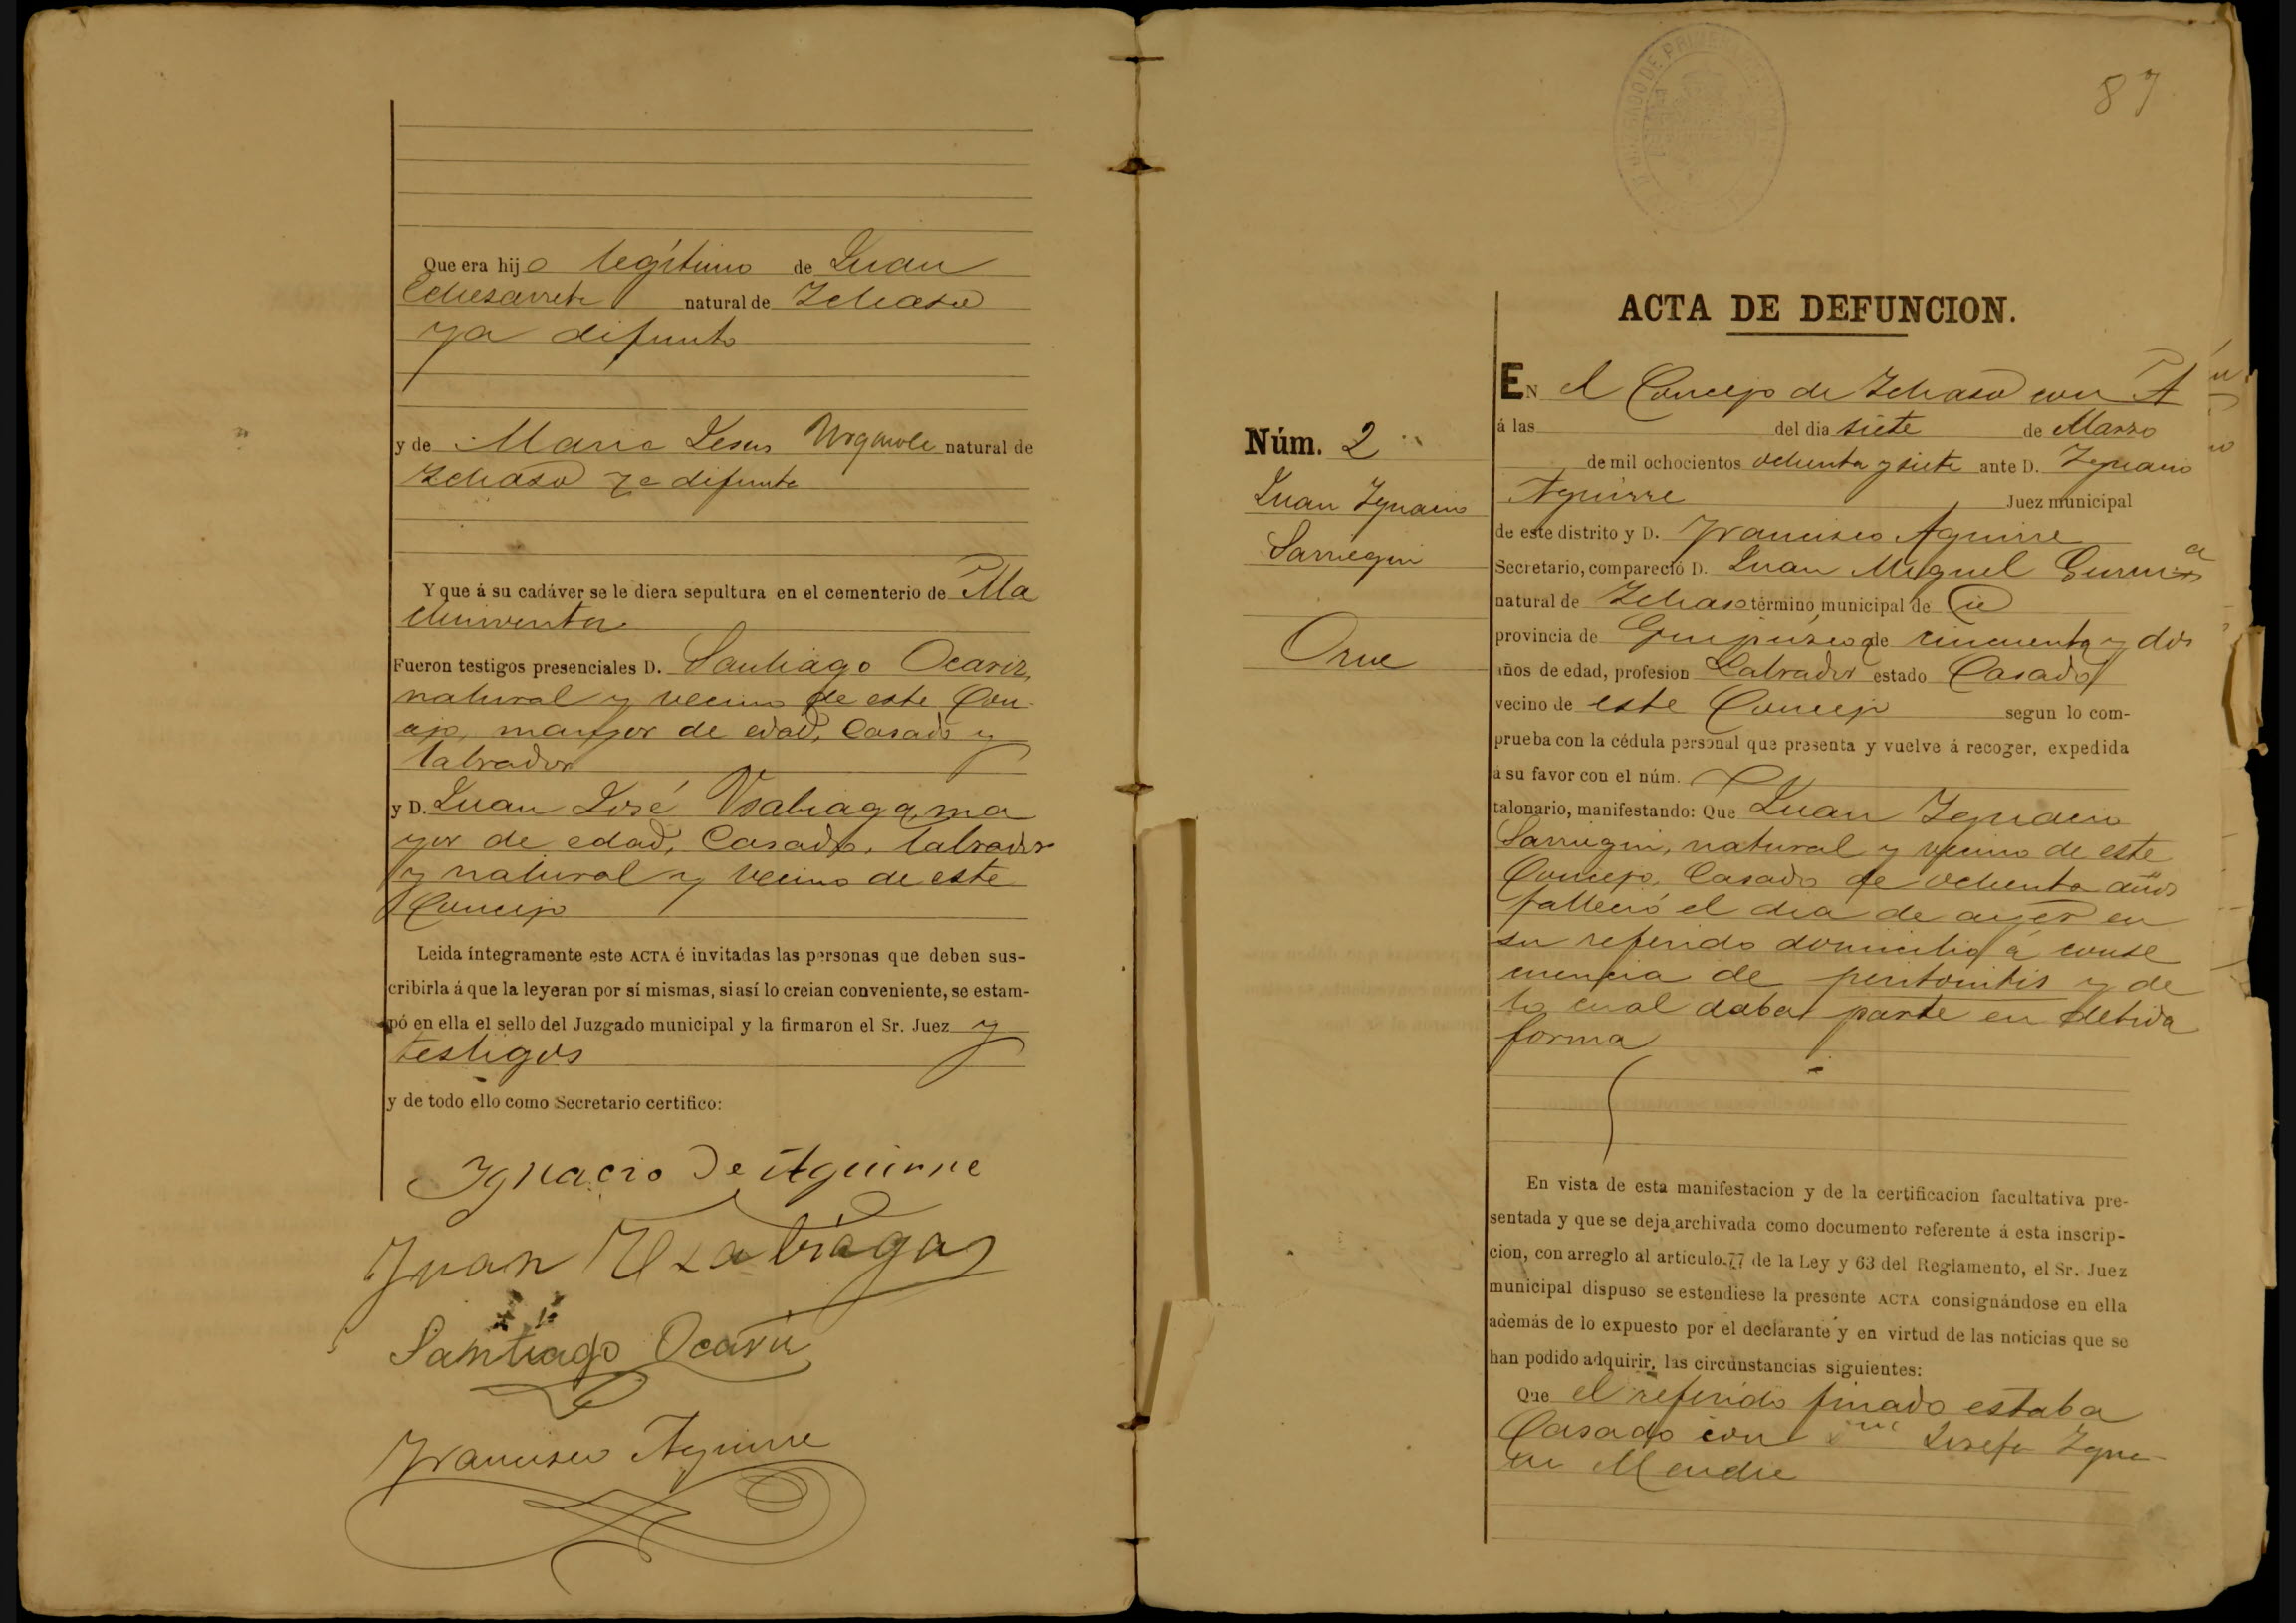 Que era hijo legítimo de Juan
Echezarreta natural de Ichaso
ya difunto
y de Maria Jesus natural de
Ichaso ya difunta
Y que á su cadáver se le diera sepultura en el cementerio de Ma
chinventa
Fueron testigos presenciales D. Santiago Ocariz,
natural y vecino de este Con
cejo, mayor de edad, Casado y
labrador
y D. Juan José Usabiaga, ma
yor de edad, Casado, labrador
y natural y vecino de este
Concejo
Leida íntegramente este ACTA é invitadas las personas que deben sus-
cribirla á que la leyeran por sí mismas, si así lo creian conveniente, se estam-
pó en ella el sello del Juzgado municipal y la firmaron el Sr. Juez y
testigos
y de todo ello como Secretario certifico:
Ignacio De Aguirre
Juan Usabiaga
Santiago Ocariz
Francisco Aguirre
87
ACTA DE DEFUNCION.
Núm. 2
Juan Ignacio
Sarriegui
Orue
EN el Concejo de Ichaso con
á las del dia siete de Marzo
de mil ochocientos ochenta y siete ante D. Ignacio
Aguirre Juez municipal
de este distrito y D. Francisco Aguirre
Secretario, compareció D. Juan Miguel
natural de Ichaso término municipal de id
provincia de Guipúzcoa de cincuenta y dos
años de edad, profesion Labrador estado Casado
vecino de este Concejo segun lo com-
prueba con la cédula personal que presenta y vuelve á recoger, expedida
á su favor con el núm.
talonario, manifestando: Que Juan Ignacio
Sarriegui, natural y vecino de este
Concejo, Casado de ochenta años
falleció el dia de ayer en
su referido domicilio á conse
cuencia de peritonitis y de
lo cual daba parte en debida
forma
En vista de esta manifestacion y de la certificacion facultativa pre-
sentada y que se deja archivada como documento referente á esta inscrip-
cion, con arreglo al artículo 77 de la Ley y 63 del Reglamento, el Sr. Juez
municipal dispuso se estendiese la presente ACTA consignándose en ella
además de lo expuesto por el declarante y en virtud de las noticias que se
han podido adquirir, las circunstancias siguientes:
Que el referido finado estaba
Casado con Josefa Igna
cia Mendia